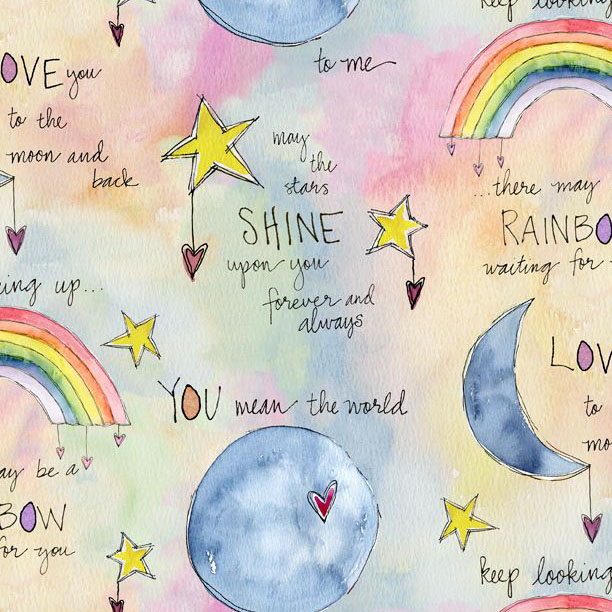 keep looking
LOVE you
to the
moon and
back
to me
may
the
stars
SHINE
upon you
forever and
always
...there may
RAINBO
waiting for
ing up...
YOU mean the world
LOV
to
mo
ay be a
BOW
for you
keep looking